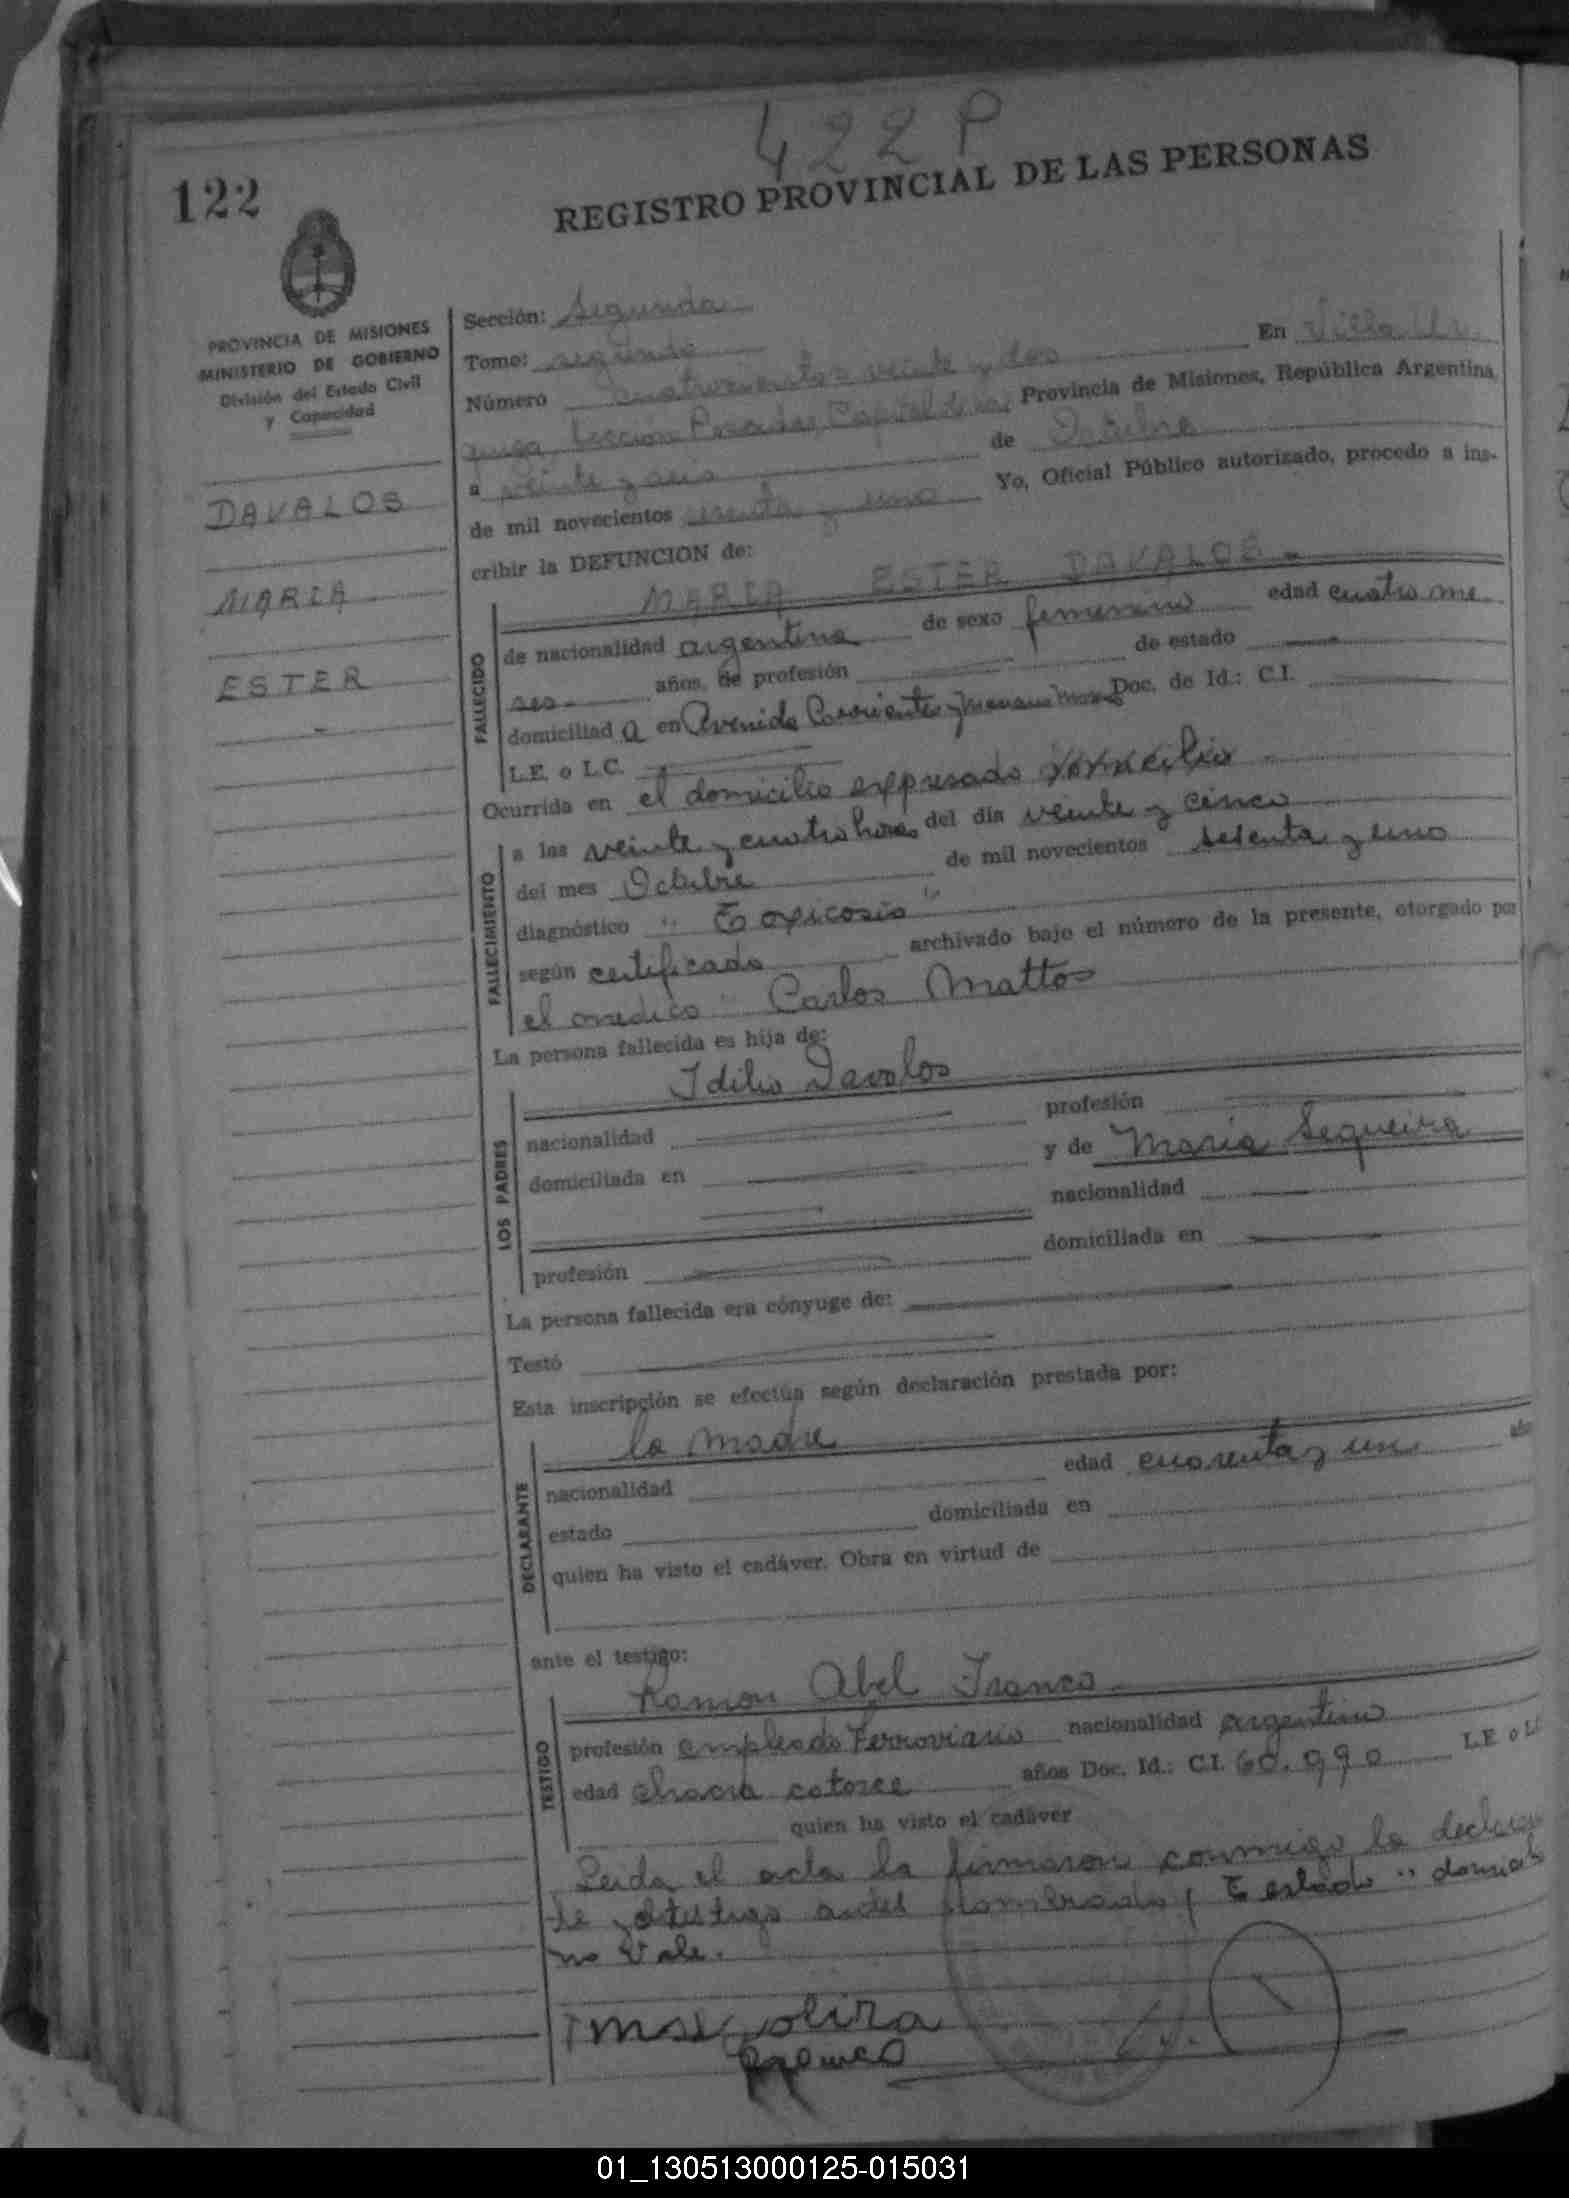 422 P
122
REGISTRO PROVINCIAL DE LAS PERSONAS
PROVINCIA DE MISIONES
MINISTERIO DE GOBIERNO
División del Estado Civil
y Capacidad
DAVALOS
MARIA
ESTER
Sección: Segunda
Tomo: segundo
Número cuatrocientos veinte y dos En Villa Ur.
quiza, Sección Posadas, Capital de la Provincia de Misiones, República Argentina,
a veinte y seis de Octubre
de mil novecientos setenta y uno Yo, Oficial Público autorizado, procedo a ins-
cribir la DEFUNCION de:
MARIA ESTER DAVALOS.-
FALLECIDO
de nacionalidad argentina de sexo femenino edad cuatro me
ses- años, de profesión de estado
domiciliad a en Avenida Corrientes y Doc. de Id.: C.I.
L.E. o L.C.
Ocurrida en el domicilio expresado
FALLECIMIENTO
a las veinte y cuatro horas del día veinte y cinco
del mes Octubre de mil novecientos setenta y uno
diagnóstico " Toxicosis "
según certificado archivado bajo el número de la presente, otorgado por
el medico Carlos Mattos
La persona fallecida es hija de:
Idilio Davalos
LOS PADRES
nacionalidad profesión
domiciliada en y de Maria Sequeira
nacionalidad
profesión domiciliada en
La persona fallecida era cónyuge de:
Testó
Esta inscripción se efectúa según declaración prestada por:
la madre
DECLARANTE
nacionalidad edad cuarenta y un años
estado domiciliada en
quien ha visto el cadáver. Obra en virtud de
ante el testigo:
Ramon Abel Franco
TESTIGO
profesión empleado Ferroviario nacionalidad argentino
edad chacra catorce años Doc. Id.: C.I. 60.990 L.E o L
quien ha visto el cadáver
Leida el acta la firmaron conmigo la declaran
te y el testigo antes nombrado, Testado " domicilio
no Vale.
01_130513000125-015031